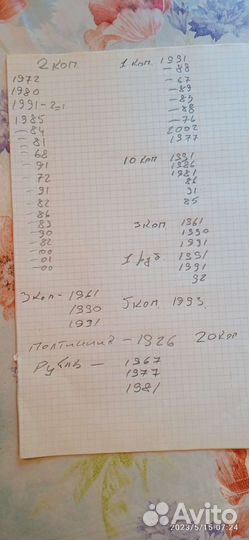 2 коп
1972
1980
1991-2шт
1985
-84
-81
-68
91
72
-91
-82
-86
-83
-90
-82
-00
-01
-00
1 коп 1991
-88
-67
-89
-85
-88
-76
2002
1977
10 коп 1991
1986
1981
86
91
85
3 коп 1961
1990
1991
1 руб 1991
1991
92
3 коп - 1961
1990
1991
5 коп 1993
Полтинник - 1926 20 коп
Рубль - 1967
1977
1981
2023/5/15 07:24
Avito